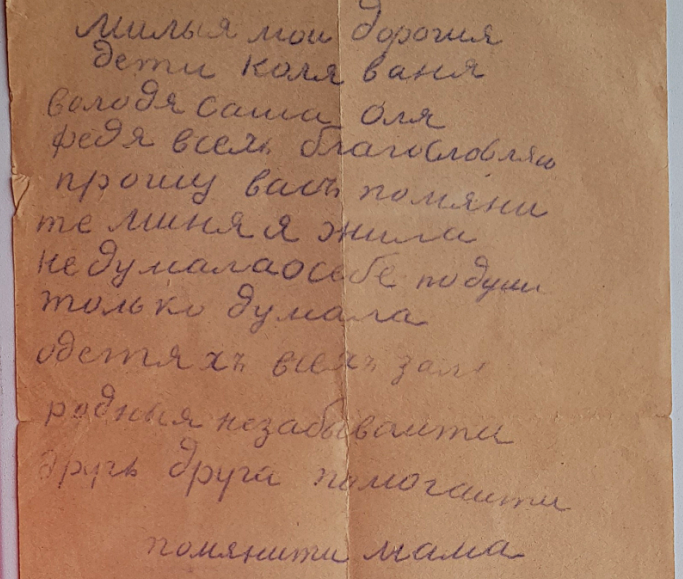 милыя мои дорогия
дети коля ваня
володя саша оля
федя всемъ благословляю
прошу васъ помяни
те миня я жила
не думала о себе по души
только думала
о детяхъ всемъ
родныя незабываити
другь друга памогаити
помянити мама